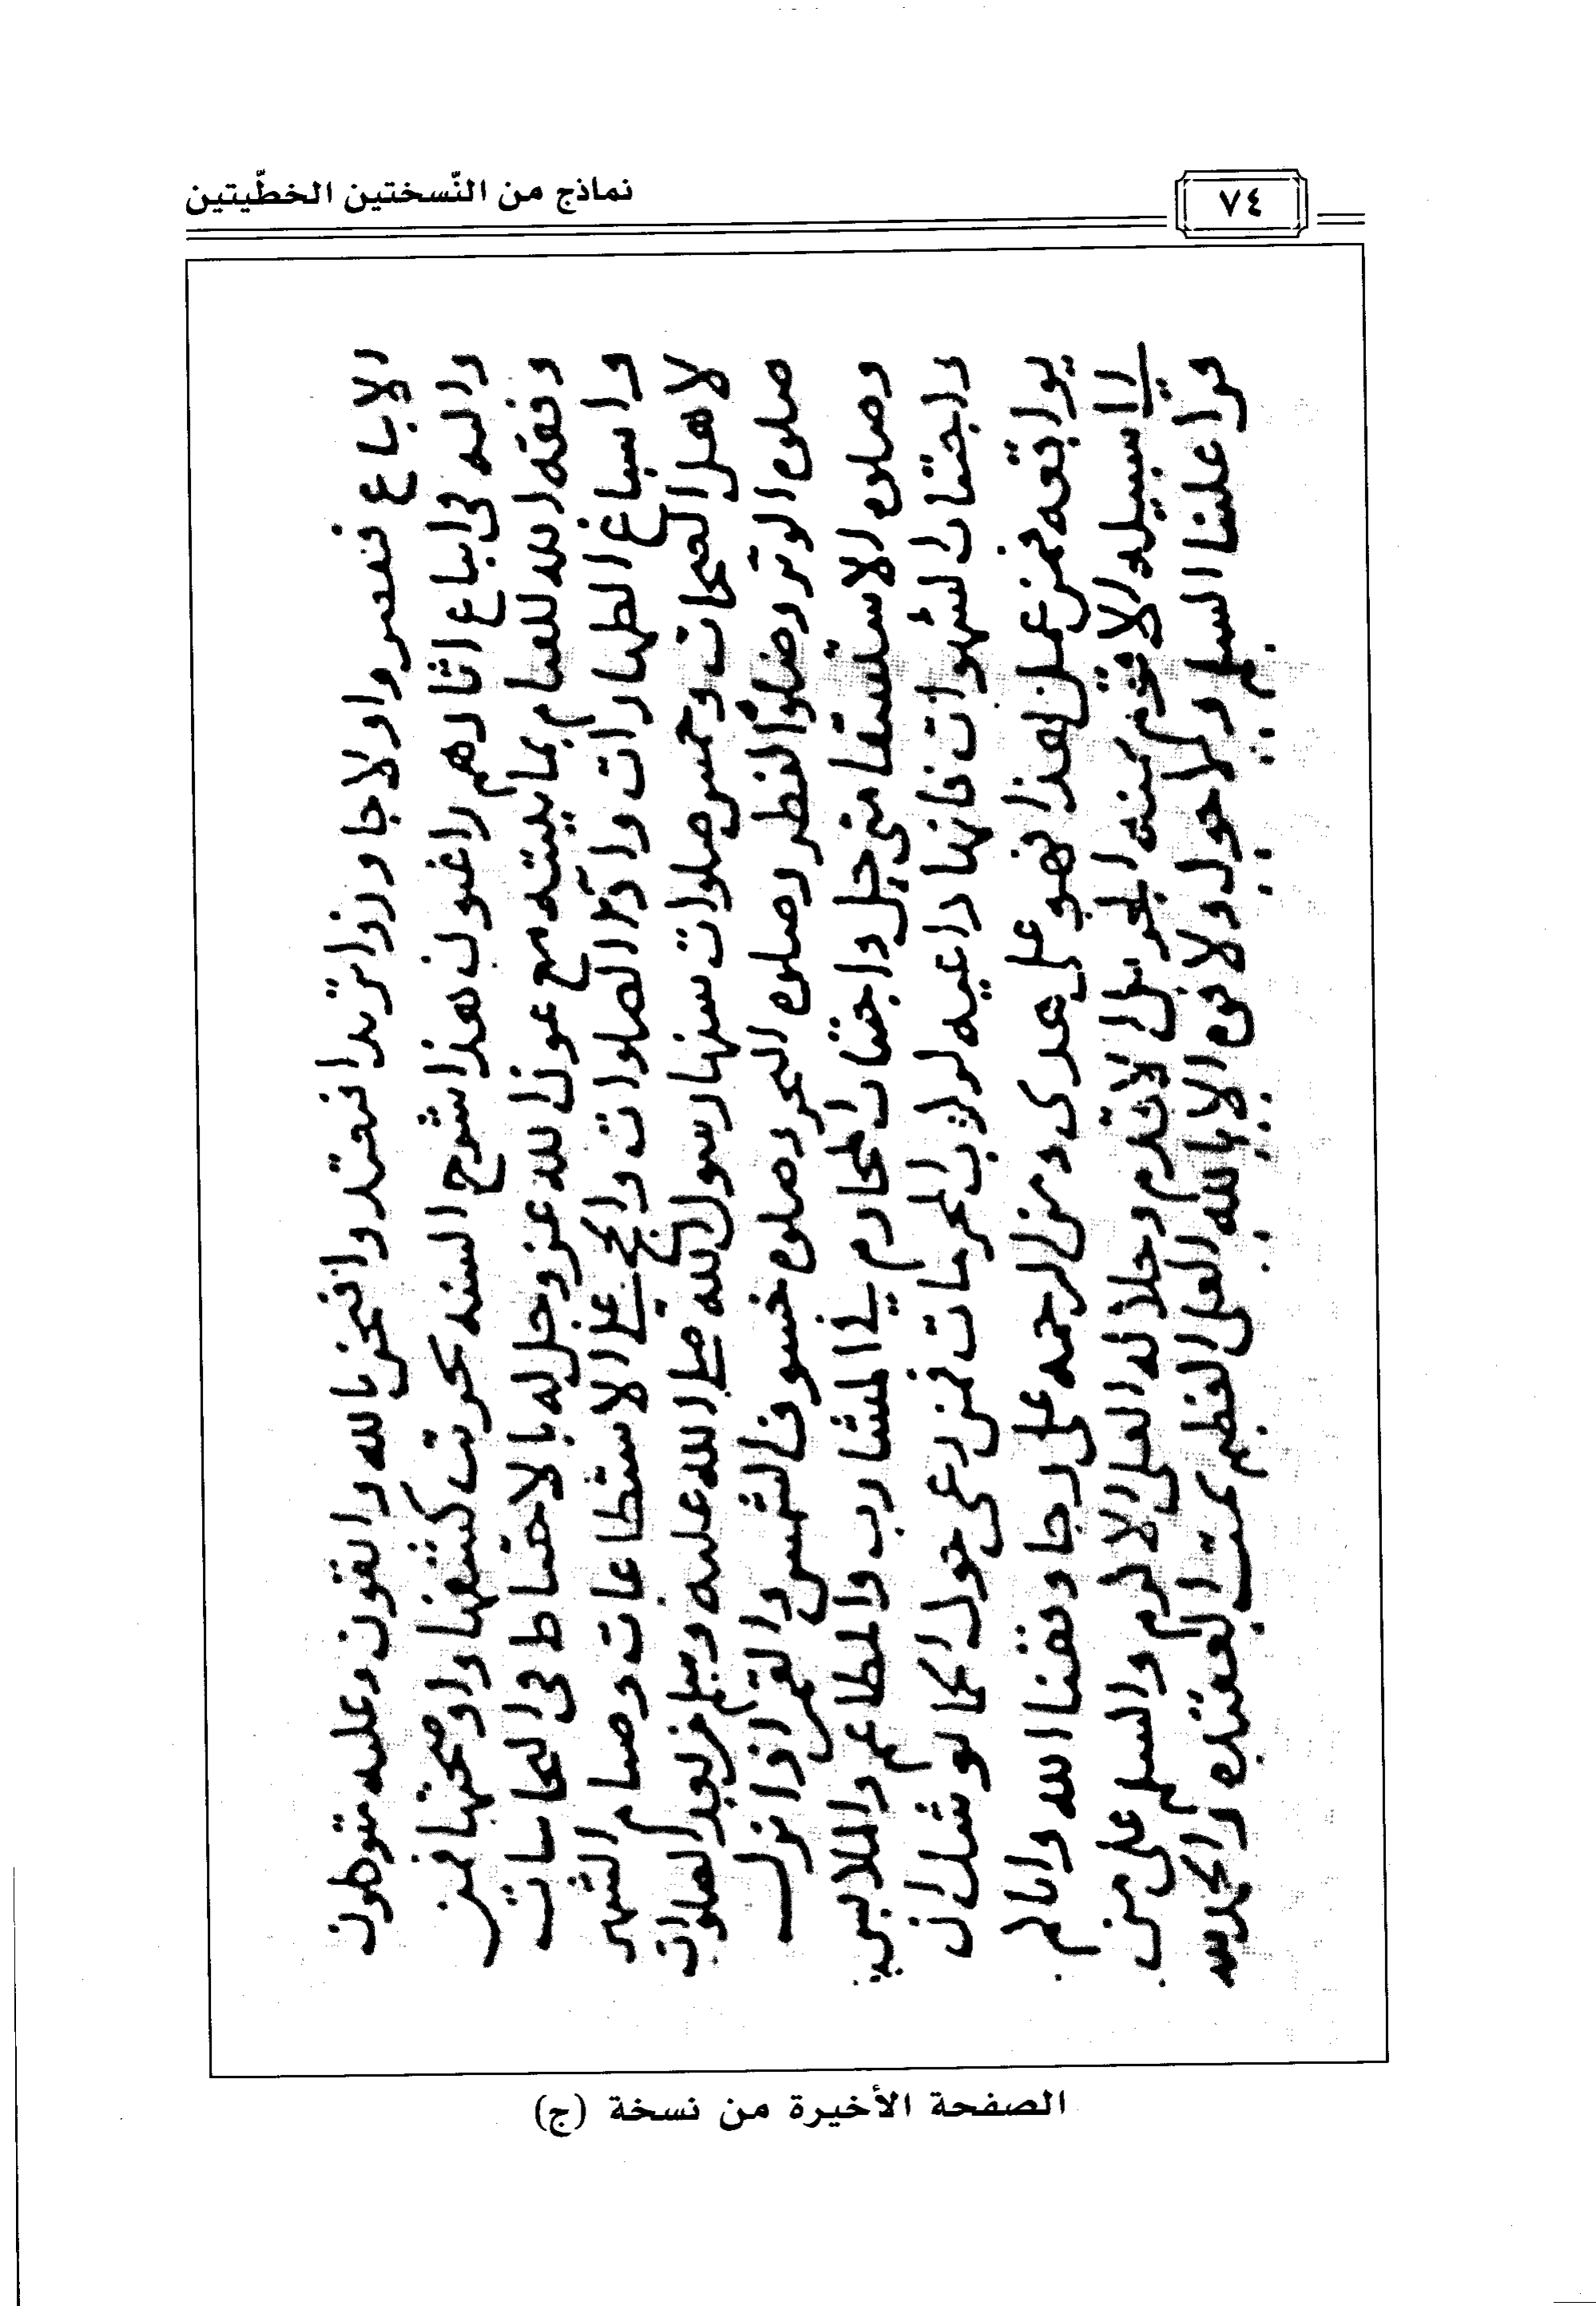 نماذج من النّسختين الخطّيتين
٧٤
الاتباع فنقصر واولا جاوزوا تزيدا فتعتدوا فنحن بالله واثقون وعليه متوكلون
واليه في اتباع اثارهم راغبون هذا شرح السنه تحريت كشفها واوضحتها فمن
وفقه الله للقيام بما بينته مع عون الله عز وجل له بالاحتياط في النجاسات
واسباغ الطهارات وادا الصلوات والحج على الاستطاعات وصيام الشهر
لاهل الصحات وخمس صلوات سنها رسول الله صلى الله عليه وسلم من بعد الصلوات
صلوه الوتر وصلوه الفطر وصلوه النحر وصلوه خسوف الشمس والقمر اذا نزل
وصلوه الاستسقا متى حل واجتناب المحارم في المشارب والمطاعم والملابس
واجتناب الشهوات فانها داعيه لركوب المحرمات فمن رعى حول الحما يوشك ان
يواقعه فمن عمل بهذا فهو على هدى ومن الرحمه على رجا وفقنا الله واياكم
الى سبيله الاقوم بمنه الجزيل الاقدم وجلاله العلى الاكرم والسلم على من
قرا علينا السلم ولا حول ولا قوه الا بالله العلى العظيم تمت العقيده والحمد لله
الصفحة الأخيرة من نسخة (ج)